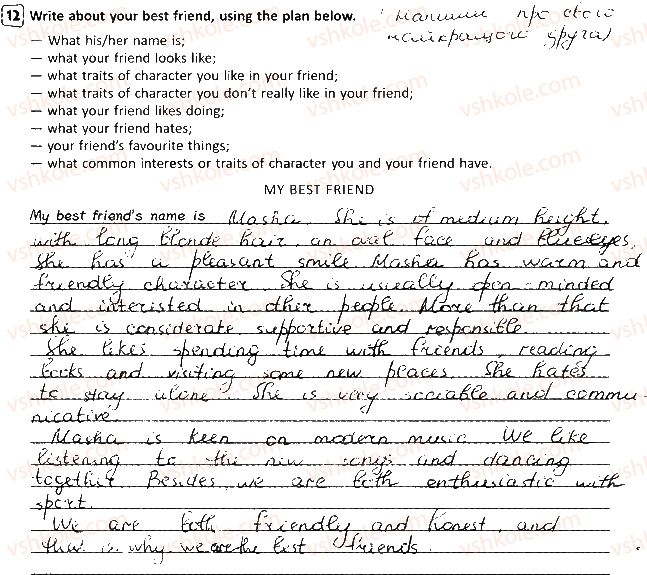 12 Write about your best friend, using the plan below. (напиши про свого
найкращого друга)
— What his/her name is;
— what your friend looks like;
— what traits of character you like in your friend;
— what traits of character you don't really like in your friend;
— what your friend likes doing;
— what your friend hates;
— your friend's favourite things;
— what common interests or traits of character you and your friend have.
MY BEST FRIEND
My best friend's name is Masha. She is of medium height,
with long blonde hair, an oval face and blue eyes.
She has a pleasant smile. Masha has warm and
friendly character. She is usually open-minded
and interisted in other people. More than that
she is considerate, supportive and responsible.
She likes spending time with friends, reading
books and visiting some new places. She hates
to stay alone. She is very sociable and commu-
nicative.
Masha is keen on modern music. We like
listening to the new songs and dancing
together. Besides, we are both enthusiastic with
sport.
We are both friendly and honest, and
that is why we are the best friends.
vshkole.com